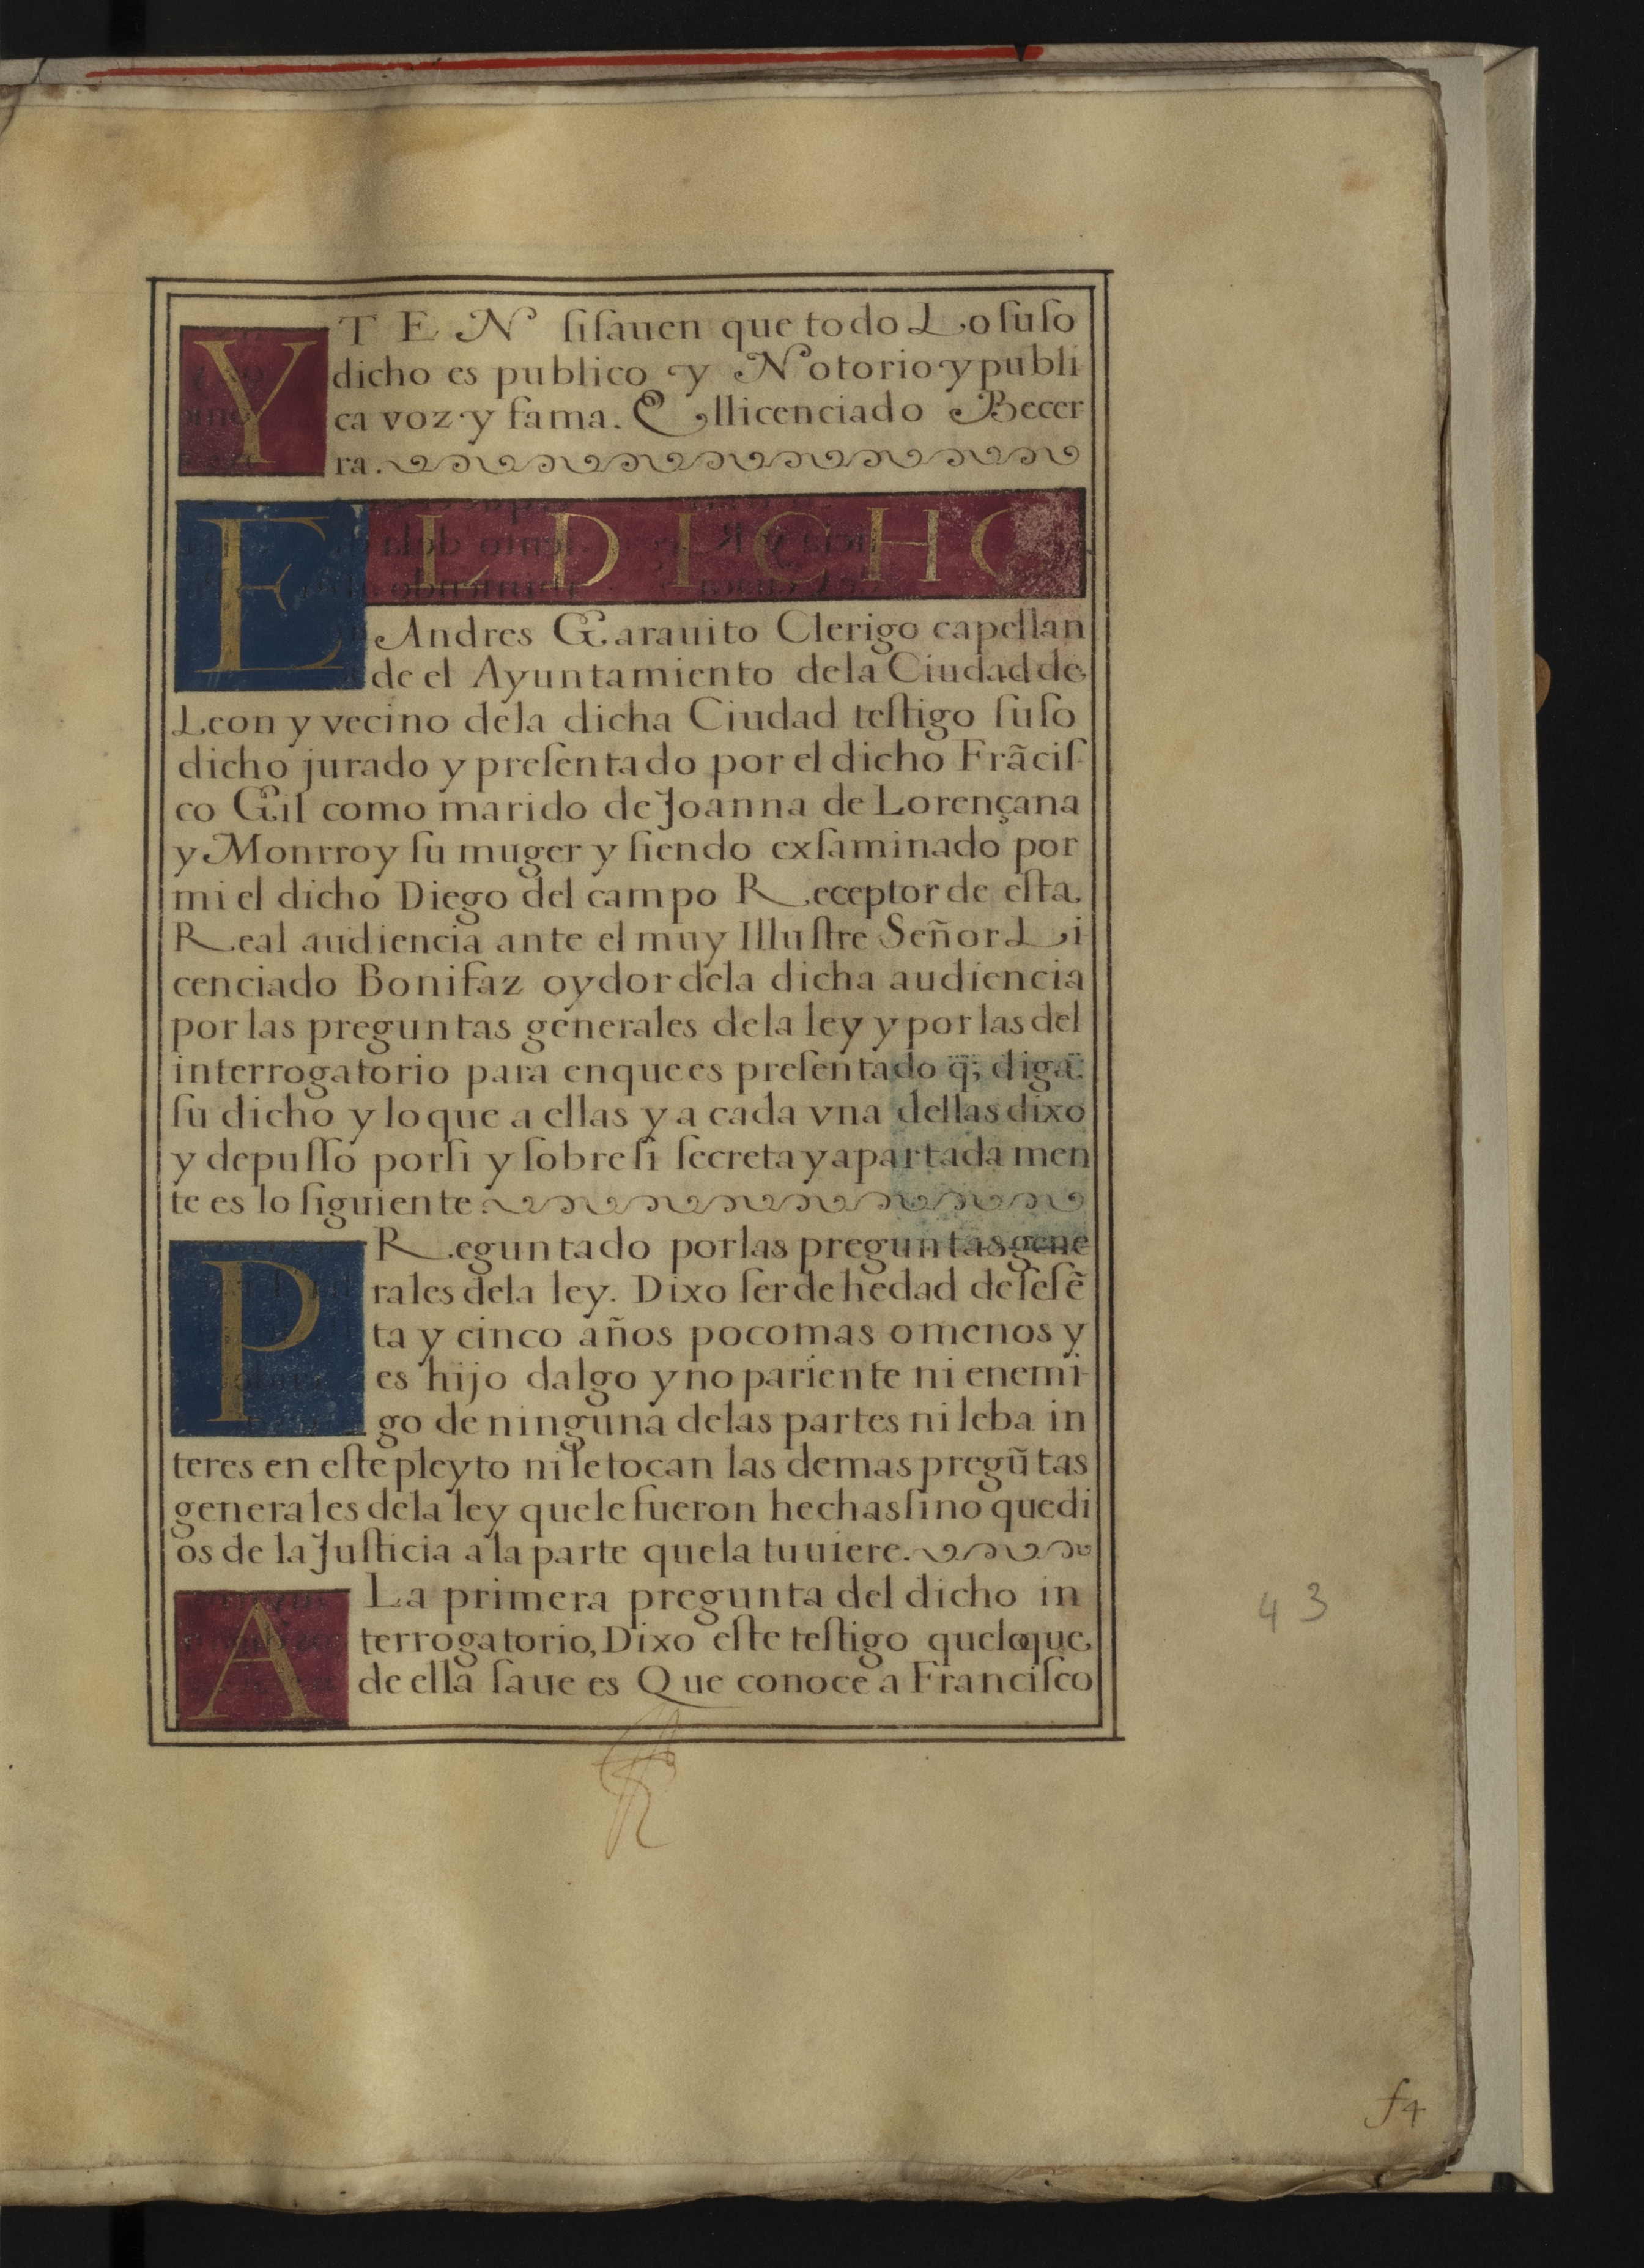 YTEN si sauen que todo Lo suso
dicho es publico y Notorio y publi
ca voz y fama. El licenciado Becer
ra.
EL DICHO
Andres Garauito Clerigo capellan
de el Ayuntamiento de la Ciudad de
Leon y vecino de la dicha Ciudad testigo suso
dicho jurado y presentado por el dicho Frãcis
co Gil como marido de Joanna de Lorençana
y Monrroy su muger y siendo exsaminado por
mi el dicho Diego del campo Receptor de esta
Real audiencia ante el muy Illustre Señor Li
cenciado Bonifaz oydor dela dicha audiencia
por las preguntas generales de la ley y por las del
interrogatorio para en que es presentado q̃; diga
su dicho y lo que a ellas y a cada vna dellas dixo
y depusso por si y sobre si secreta y apartada men
te es lo siguiente
PReguntado por las preguntas gene
rales dela ley. Dixo ser de hedad de sesẽ
ta y cinco años poco mas o menos y
es hijo dalgo y no pariente ni enemi-
go de ninguna delas partes ni leba in
teres en este pleyto ni le tocan las demas pregũtas
generales dela ley que le fueron hechas sino que di
os de la Justicia a la parte que la tuuiere.
A La primera pregunta del dicho in
terrogatorio, Dixo este testigo que lo que
de ella saue es Que conoce a Francisco
43
f4